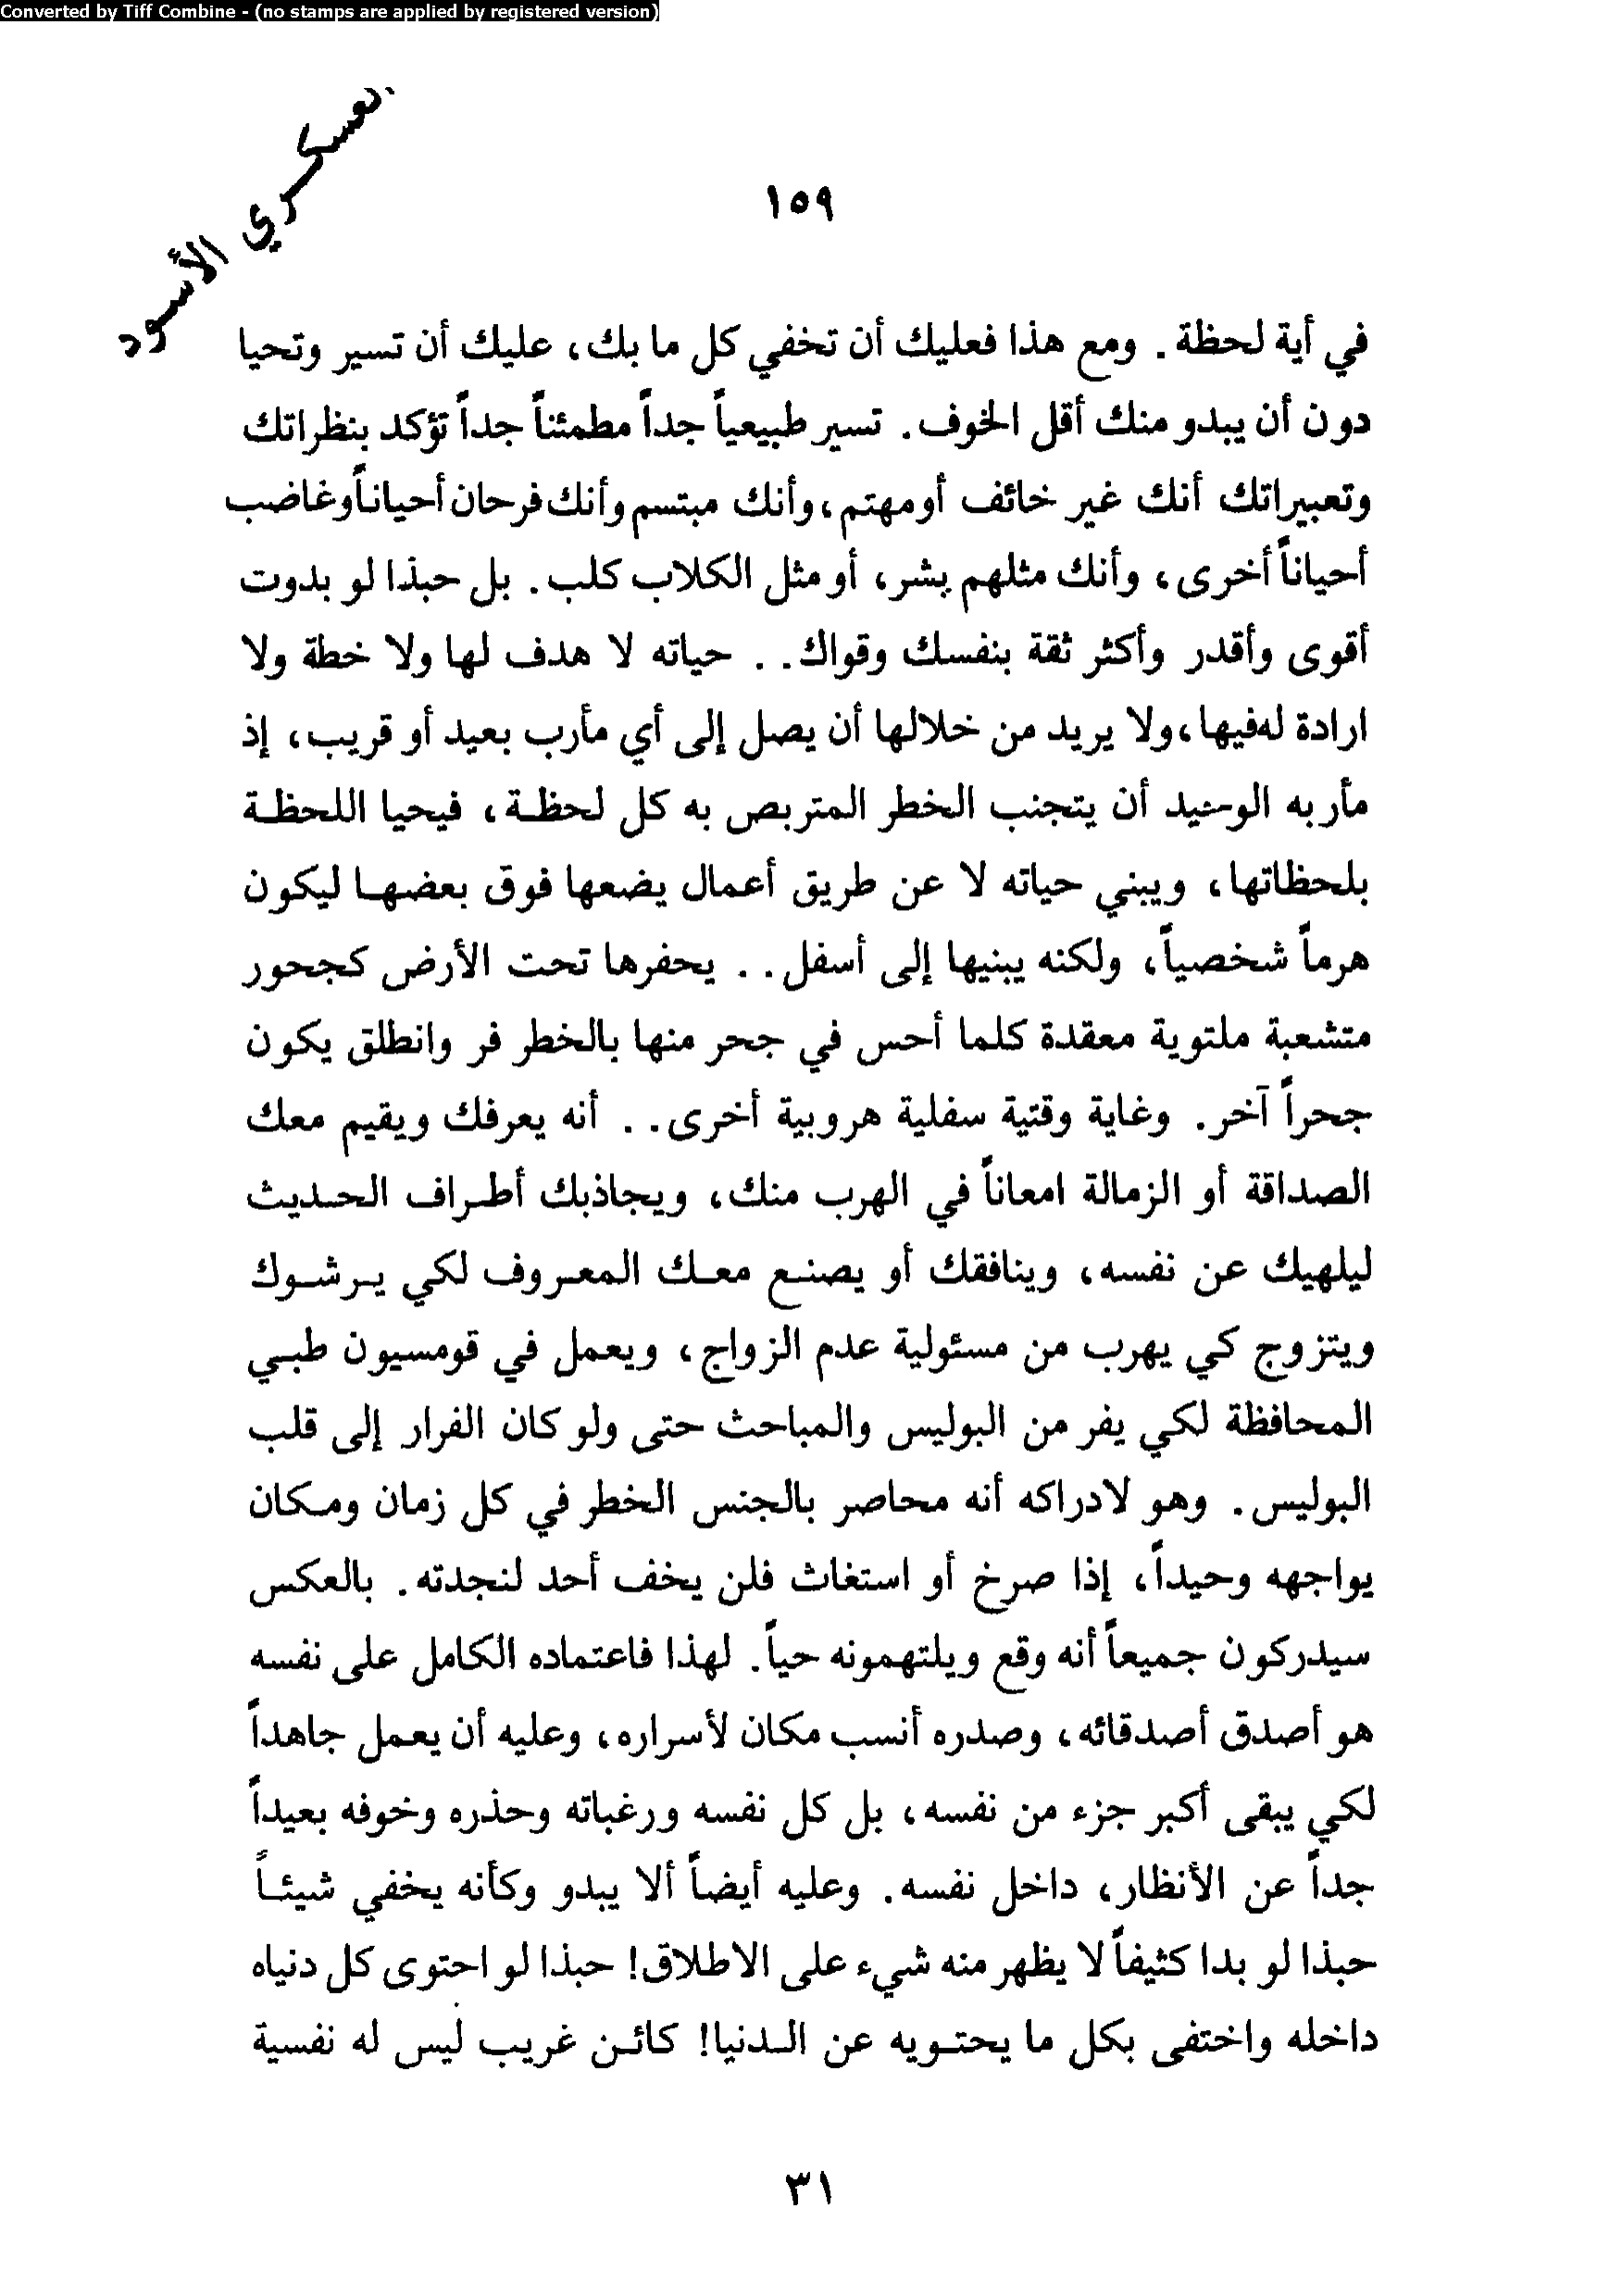 Converted by Tiff Combine - (no stamps are applied by registered version)
العسكري الأسود
١٥٩
في أية لحظة . ومع هذا فعليك أن تخفي كل ما بك، عليك أن تسير وتحيا
دون أن يبدو منك أقل الخوف. تسير طبيعياً جداً مطمئناً جداً تؤكد بنظراتك
وتعبيراتك أنك غير خائف أومهتم،وأنك مبتسم وأنك فرحان أحياناً وغاضب
أحياناً أخرى، وأنك مثلهم بشر، أو مثل الكلاب كلب. بل حبذا لو بدوت
أقوى وأقدر وأكثر ثقة بنفسك وقواك. . حياته لا هدف لها ولا خطة ولا
ارادة له فيها،ولا يريد من خلالها أن يصل إلى أي مأرب بعيد أو قريب، إذ
مأربه الوحيد أن يتجنب الخطر المتربص به كل لحظة، فيحيا اللحظة
بلحظاتها، ويبني حياته لا عن طريق أعمال يضعها فوق بعضها ليكون
هرماً شخصياً، ولكنه يبنيها إلى أسفل. . يحفرها تحت الأرض كجحور
متشعبة ملتوية معقدة كلما أحس في جحر منها بالخطر فر وانطلق يكون
جحراً آخر. وغاية وقتية سفلية هروبية أخرى. . أنه يعرفك ويقيم معك
الصداقة أو الزمالة امعاناً في الهرب منك، ويجاذبك أطراف الحديث
ليلهيك عن نفسه، وينافقك أو يصنع معك المعروف لكي يرشوك
ويتزوج كي يهرب من مسئولية عدم الزواج، ويعمل في قومسيون طبي
المحافظة لكي يفر من البوليس والمباحث حتى ولو كان الفرار إلى قلب
البوليس. وهو لادراكه أنه محاصر بالجنس الخطر في كل زمان ومكان
يواجهه وحيداً، إذا صرخ أو استغاث فلن يخف أحد لنجدته. بالعكس
سيدركون جميعاً أنه وقع ويلتهمونه حياً. لهذا فاعتماده الكامل على نفسه
هو أصدق أصدقائه، وصدره أنسب مكان لأسراره، وعليه أن يعمل جاهداً
لكي يبقى أكبر جزء من نفسه، بل كل نفسه ورغباته وحذره وخوفه بعيداً
جداً عن الأنظار، داخل نفسه. وعليه أيضاً ألا يبدو وكأنه يخفي شيئاً
حبذا لو بدا كثيفاً لا يظهر منه شيء على الاطلاق! حبذا لو احتوى كل دنياه
داخله واختفى بكل ما يحتويه عن الدنيا! كائن غريب ليس له نفسية
٣١